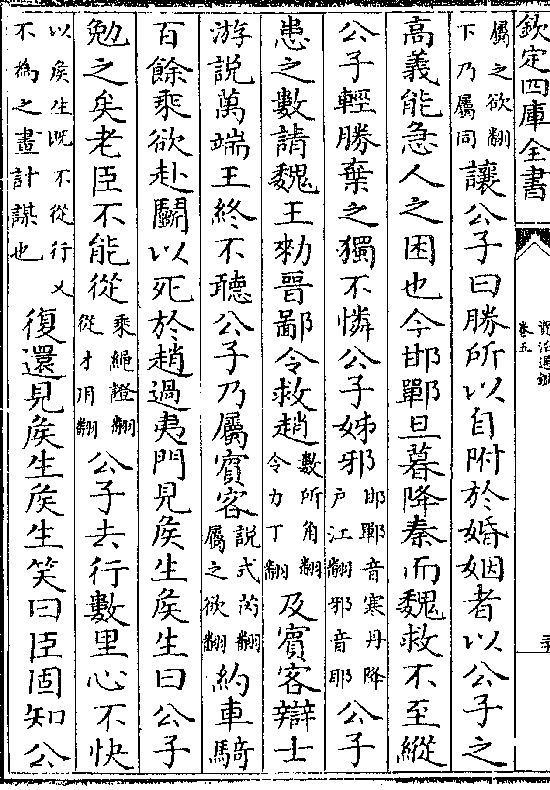 欽定四庫全書
資治通鑑
卷五
三十
屬之欲翻
下乃屬同
讓公子曰勝所以自附於婚姻者以公子之
高義能急人之困也今邯鄲旦暮降秦而魏救不至縱
公子輕勝棄之獨不憐公子姊邪
邯鄲音寒丹降
戶江翻邪音耶
公子
患之數請魏王勑晉鄙令救趙
數所角翻
令力丁翻
及賓客辯士
游說萬端王終不聽公子乃屬賓客
說式芮翻
屬之欲翻
約車騎
百餘乘欲赴鬬以死於趙過夷門見矦生矦生曰公子
勉之矣老臣不能從
乘繩證翻
從才用翻
公子去行數里心不快
以矦生既不從行又
不為之畫計謀也
復還見矦生矦生笑曰臣固知公